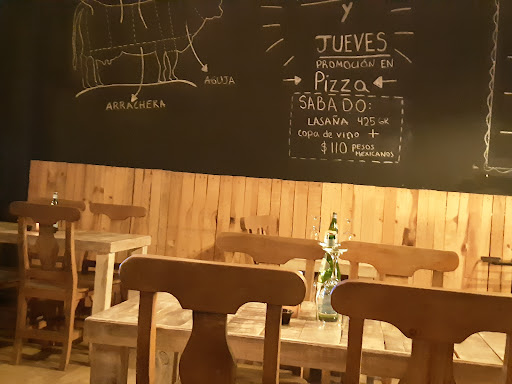 y
JUEVES
PROMOCIÓN EN
Pizza
SABADO:
LASAÑA 425 GR
copa de vino +
$110 PESOS
MEXICANOS
AGUJA
ARRACHERA